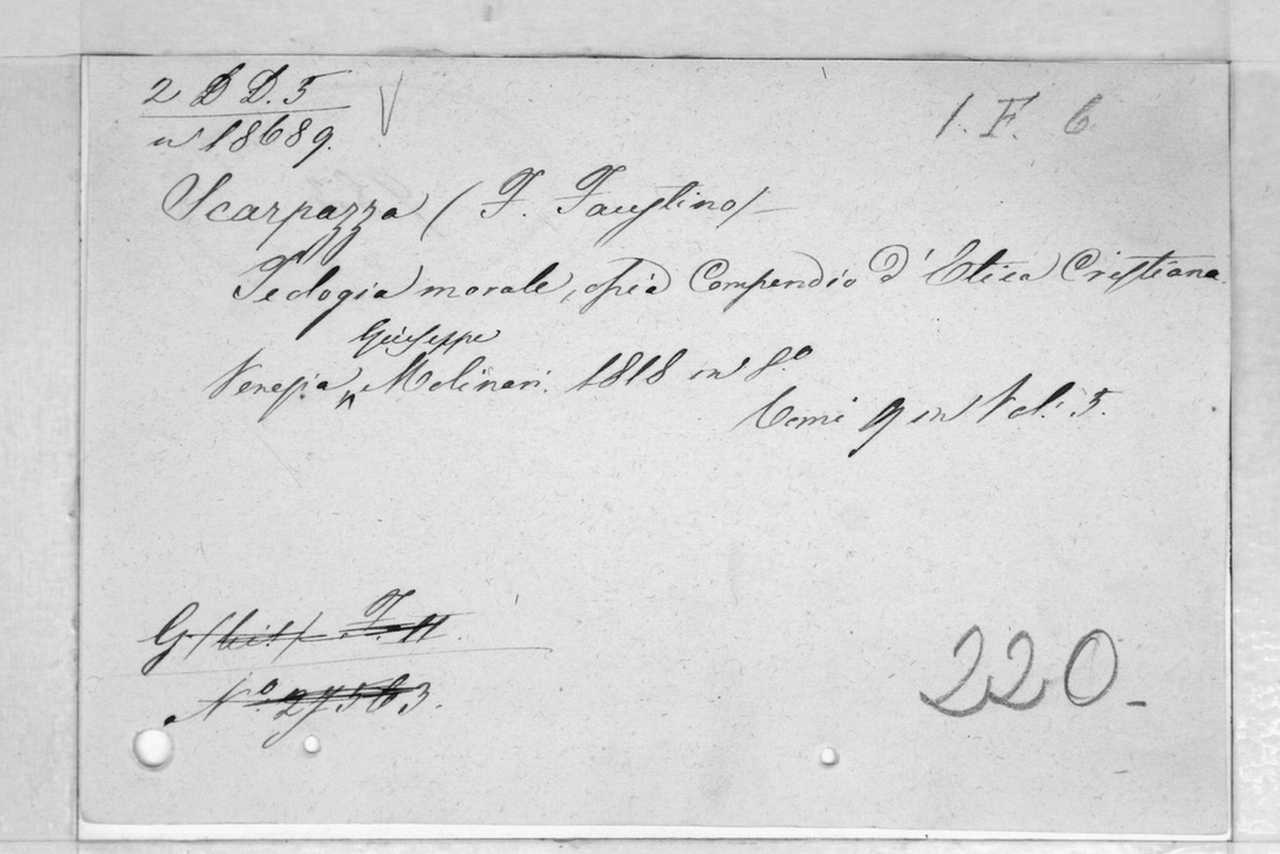 2 D D. 5
1. F. 6.
n 18689.
Scarpazza (F. Faustino)
Teologia morale, ossia Compendio d'Etica Cristiana.
Giuseppe
Venezia, Molinari. 1818 in 8.º
Tomi 9 in Vol. 5.
G. F. 11.
Nº 27563.
220.